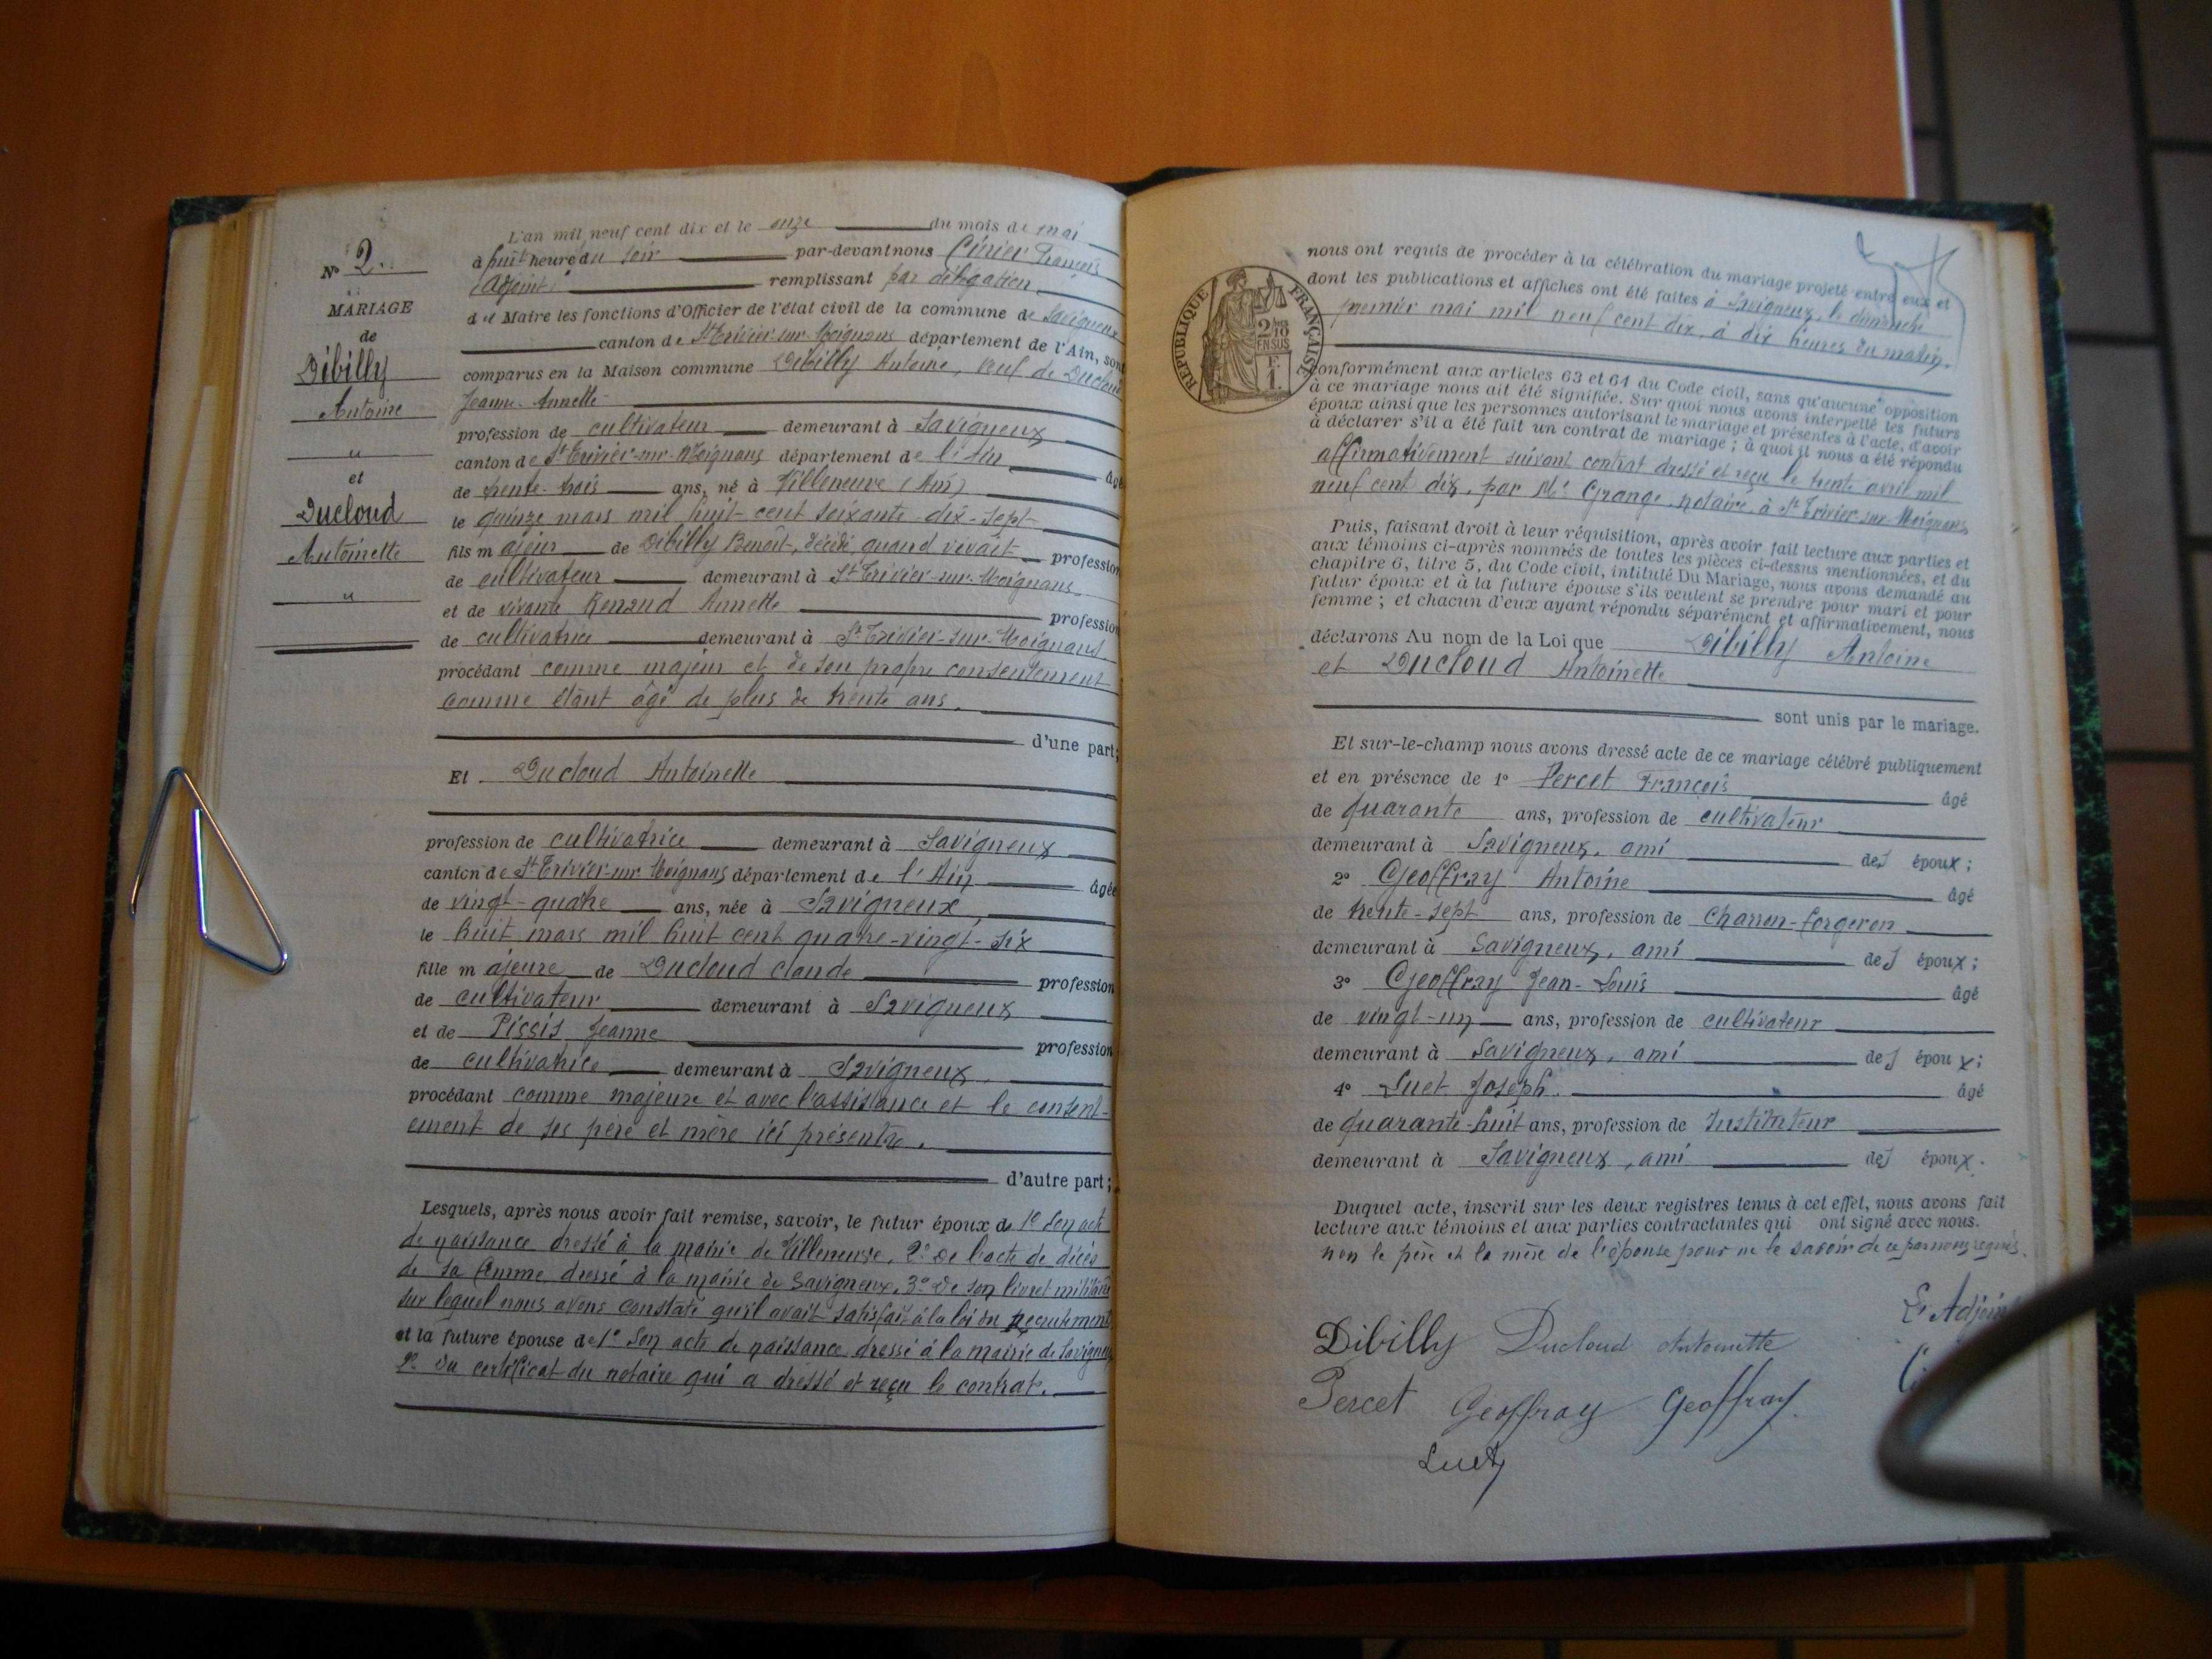 L'an mil neuf cent dix et le onze du mois de mai
à huit heure du soir par-devant nous Cinier François
Adjoint remplissant par délégation
du Maire les fonctions d'Officier de l'état civil de la commune de Savigneux
canton de St Trivier-sur-Moignans département de l'Ain, sont
comparus en la Maison commune Dibilly Antoine, veuf de Ducloud
Jeanne-Annette
profession de cultivateur demeurant à Savigneux
canton de St Trivier-sur-Moignans département de l'Ain âgé
de trente-trois ans, né à Villeneuve (Ain)
le quinze mars mil huit-cent soixante-dix-sept
fils majeur de Dibilly Benoit, décédé quand vivait profession
de cultivateur demeurant à St Trivier-sur-Moignans
et de vivante Renaud Annette profession
de cultivatrice demeurant à St Trivier-sur-Moignans
procédant comme majeur et de son propre consentement
comme étant âgé de plus de trente ans.
d'une part;
Et Ducloud Antoinette
profession de cultivatrice demeurant à Savigneux
canton de St Trivier-sur-Moignans département de l'Ain âgée
de vingt-quatre ans, née à Savigneux,
le huit mars mil huit cent quatre-vingt-six
fille majeure de Ducloud Claude profession
de cultivateur demeurant à Savigneux
et de Pissis Jeanne profession
de cultivatrice demeurant à Savigneux,
procédant comme majeure et avec l'assistance et le consent-
ement de ses père et mère ici présents.
d'autre part;
Lesquels, après nous avoir fait remise, savoir, le futur époux de 1º Son acte
de naissance dressé à la mairie de Villeneuve, 2º de l'acte de décès
de sa femme dressé à la mairie de Savigneux, 3º de son livret militaire
sur lequel nous avons constaté qu'il avait satisfait à la loi du recrutement
et la future épouse de 1º Son acte de naissance dressé à la mairie de Savigneux
2º du certificat du notaire qui a dressé et reçu le contrat.
Nº 2.
MARIAGE
de
Dibilly
Antoine
"
et
Ducloud
Antoinette
"
RÉPUBLIQUE FRANÇAISE
2/10
EN SUS
F
1.
nous ont requis de procéder à la célébration du mariage projeté entre eux et
dont les publications et affiches ont été faites à Savigneux, le dimanche
premier mai mil neuf cent dix, à dix heures du matin.
Conformément aux articles 63 et 64 du Code civil, sans qu'aucune opposition
à ce mariage nous ait été signifiée. Sur quoi nous avons interpellé les futurs
époux ainsi que les personnes autorisant le mariage et présentes à l'acte, d'avoir
à déclarer s'il a été fait un contrat de mariage; à quoi il nous a été répondu
affirmativement suivant contrat dressé et reçu le trente avril mil
neuf cent dix, par Me Grange, notaire, à St Trivier-sur-Moignans
Puis, faisant droit à leur réquisition, après avoir fait lecture aux parties et
aux témoins ci-après nommés de toutes les pièces ci-dessus mentionnées, et du
chapitre 6, titre 5, du Code civil, intitulé Du Mariage, nous avons demandé au
futur époux et à la future épouse s'ils veulent se prendre pour mari et pour
femme; et chacun d'eux ayant répondu séparément et affirmativement, nous
déclarons Au nom de la Loi que Dibilly Antoine
et Ducloud Antoinette
sont unis par le mariage.
Et sur-le-champ nous avons dressé acte de ce mariage célébré publiquement
et en présence de 1º Percet François âgé
de quarante ans, profession de cultivateur
demeurant à Savigneux, ami des époux;
2º Geoffray Antoine âgé
de trente-sept ans, profession de Charron-forgeron
demeurant à Savigneux, ami des époux;
3º Geoffray Jean-Louis âgé
de vingt-un ans, profession de cultivateur
demeurant à Savigneux, ami des époux;
4º Luet Joseph. âgé
de quarante-huit ans, profession de Instituteur
demeurant à Savigneux, ami des époux.
Duquel acte, inscrit sur les deux registres tenus à cet effet, nous avons fait
lecture aux témoins et aux parties contractantes qui ont signé avec nous.
non le père et la mère de l'épouse pour ne le savoir de ce par nous requis.
L'Adjoint
Dibilly Ducloud Antoinette
Percet Geoffray Geoffray
Luet